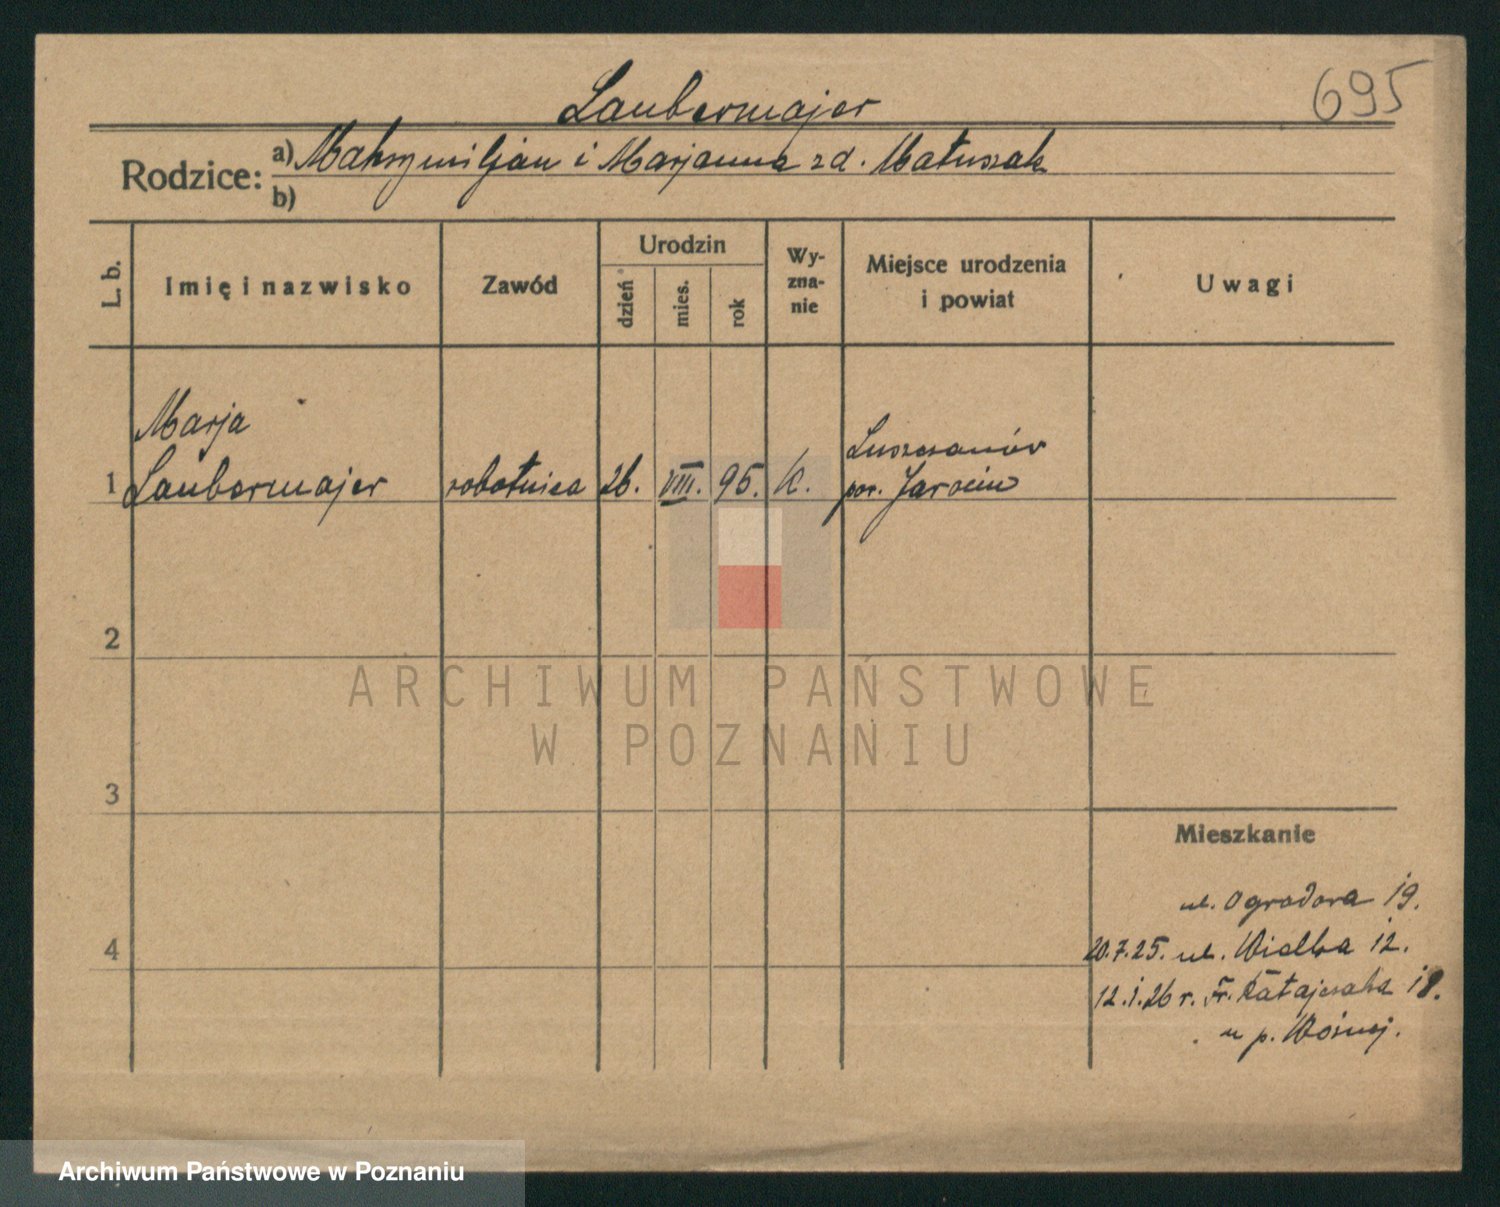 695
Laubermajer
Rodzice: a) Maksymiljan i Marjanna zd. Matuszak
b)
L. b.
Imię i nazwisko
Zawód
Urodzin
dzień
mies.
rok
Wy-
zna-
nie
Miejsce urodzenia
i powiat
Uwagi
Marja
1 Laubermajer robotnica 26. VIII. 95. k.
Luszczanów
pow. Jarocin
2
3
4
Mieszkanie
ul. Ogrodowa 19.
20.7.25. ul. Wielka 12.
12.1.26 r. Fr. Ratajczaka 18.
u p. Woźnej.
ARCHIWUM PAŃSTWOWE
W POZNANIU
Archiwum Państwowe w Poznaniu